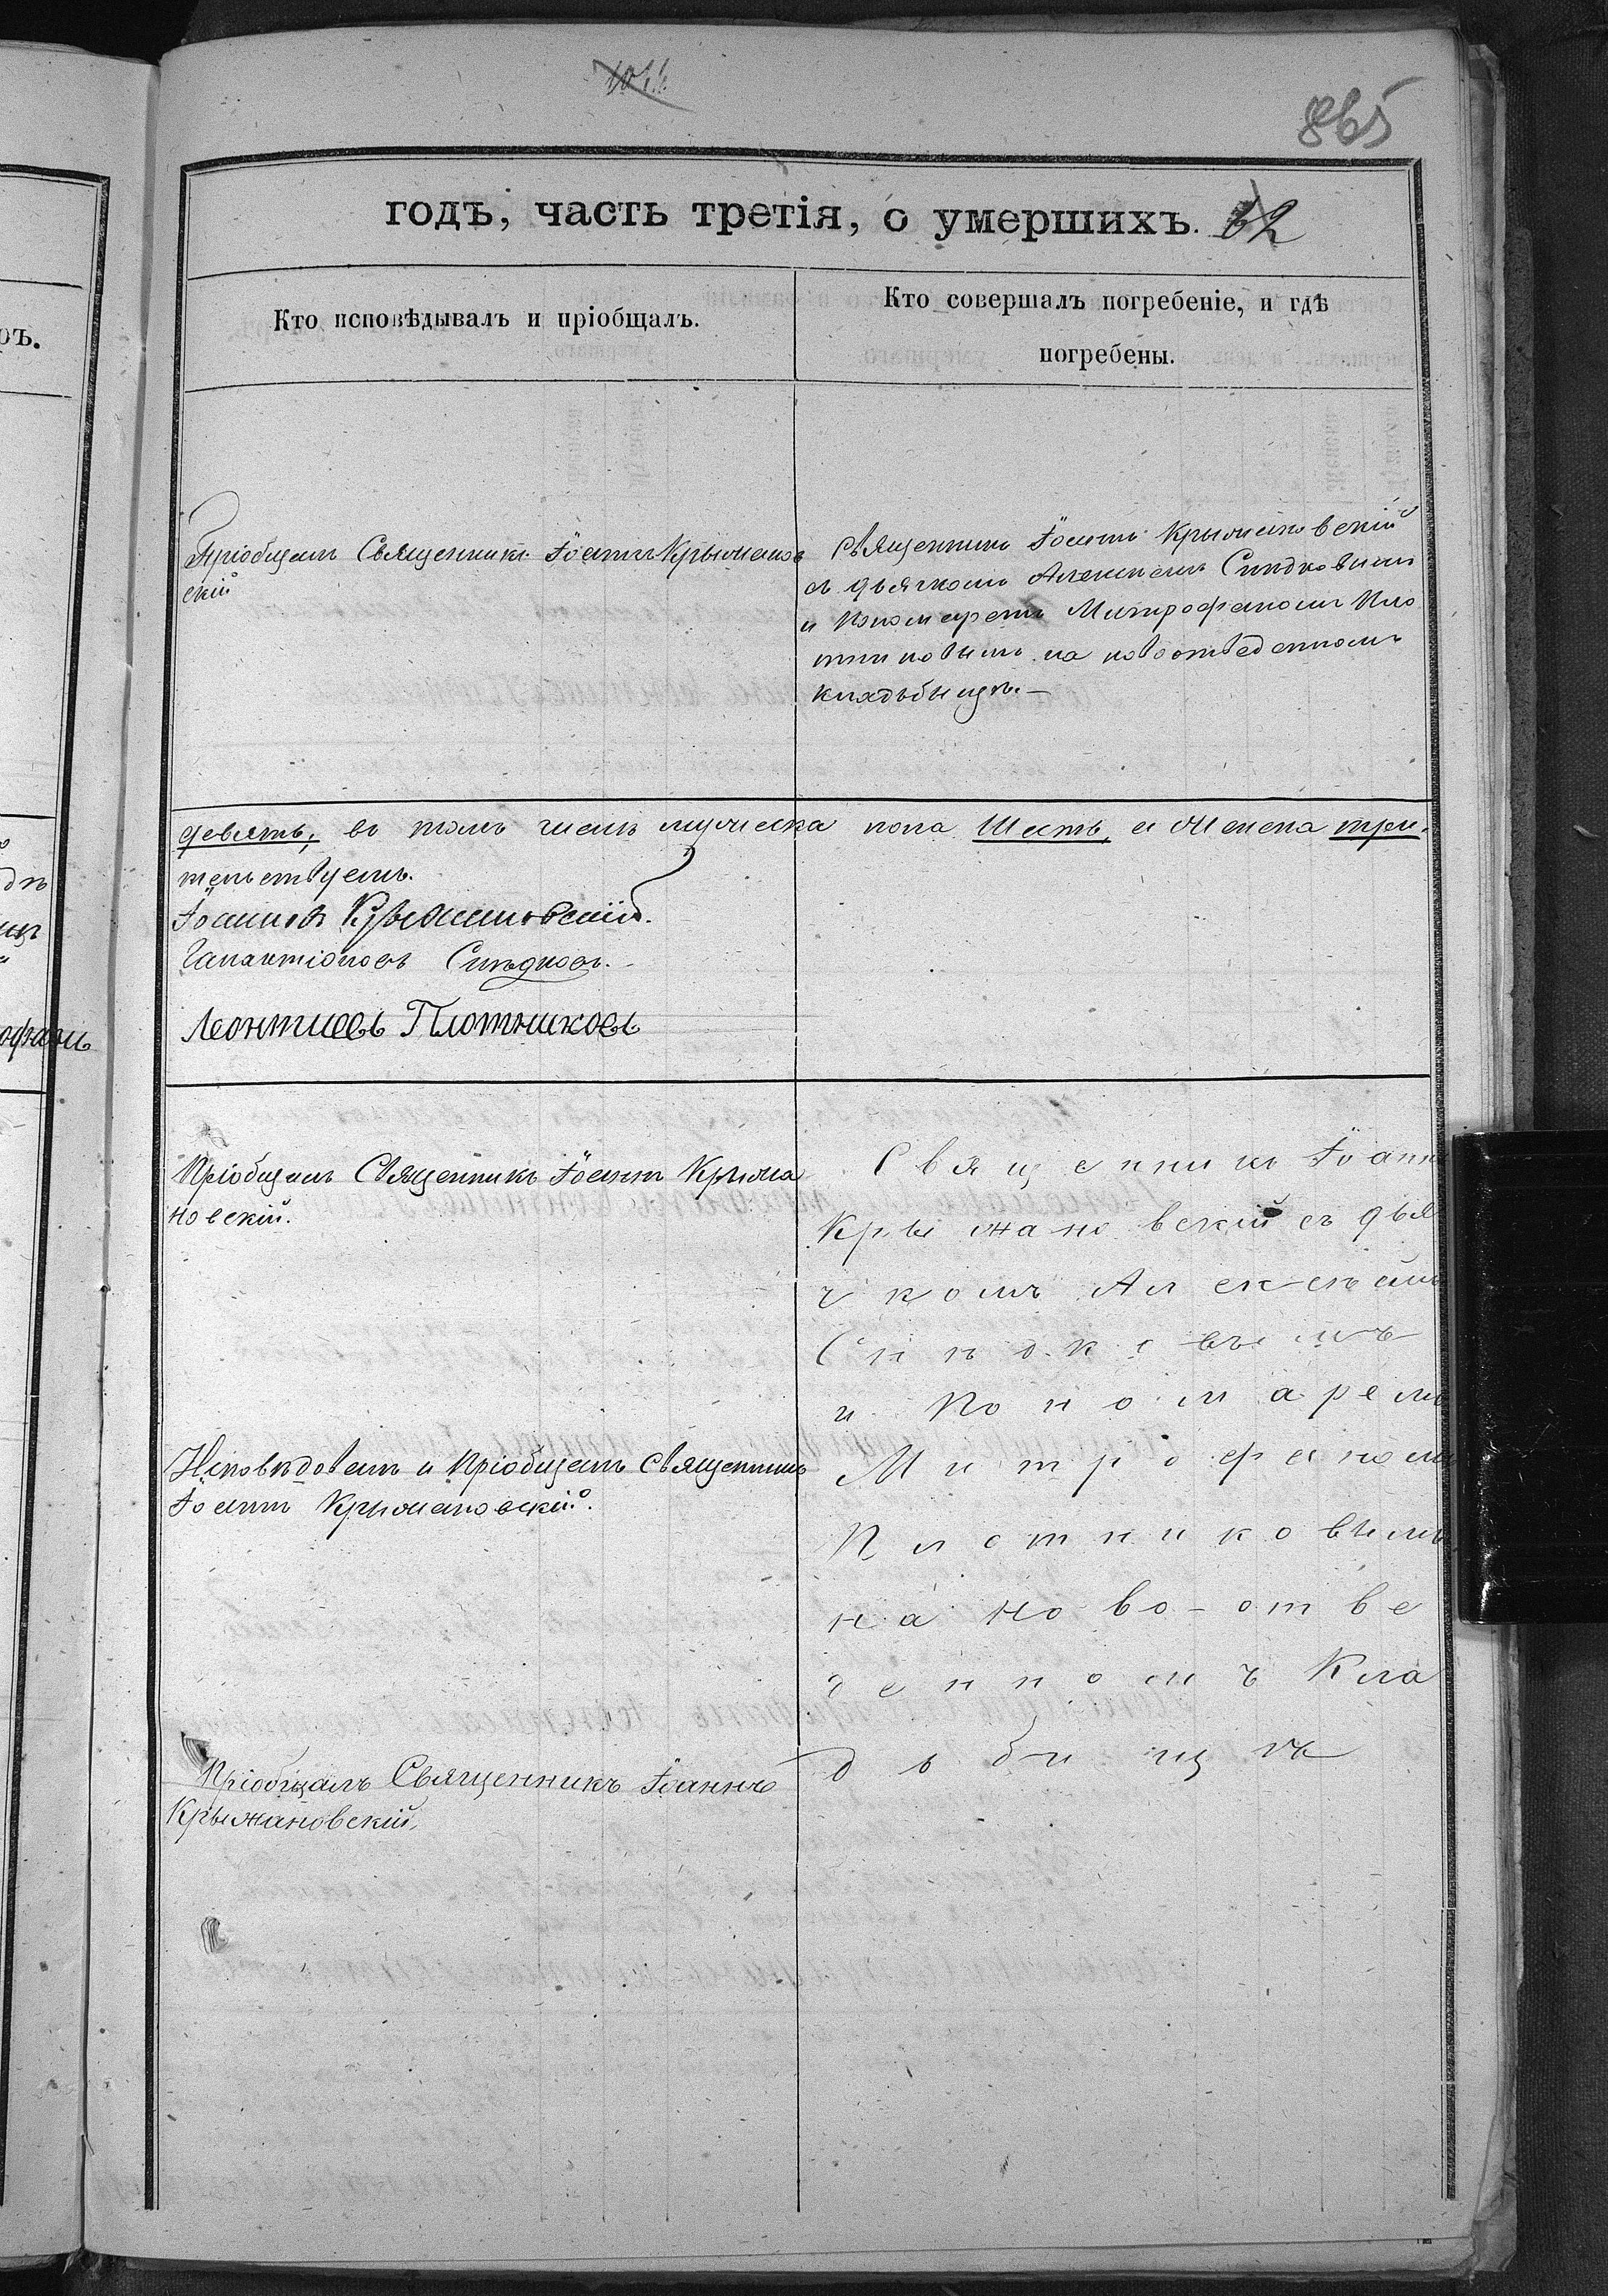 865
годъ, часть третія, о умершихъ. 62
Кто исповѣдывалъ и пріобщалъ.
Кто совершалъ погребеніе, и гдѣ
погребены.
Пріобщалъ Священникъ Іоаннъ Крыжанов
скій
Священникъ Іоаннъ Крыжановскій
съ дьячкомъ Алексѣемъ Сѣдковымъ
и Пономаремъ Митрофаномъ Пло
тниковымъ на новоотведенномъ
кладьбищѣ.—
девять, въ томъ числѣ мужеска пола шесть, а женска три.
тельствуемъ.
Іоаннъ Крыжановскій.
Галактіоновъ
Леонтиевъ Плотниковъ
Пріобщалъ Священникъ Іоаннъ Крыжа
новскій.
Исповѣдовалъ и пріобщалъ Священникъ
Іоаннъ Крыжановскій.
Пріобщалъ Священникъ Іоаннъ
Крыжановскій.
Священникъ Іоаннъ
Крыжановскій съ дья
чкомъ Алексѣемъ
и Пономаремъ
Митрофаномъ
Плотниковымъ
на ново-отве
денномъ Кла
дьбищѣ
офаномъ
ръ.